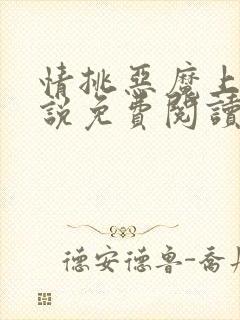 情挑惡魔上
說免費閱讀
德安德魯-喬